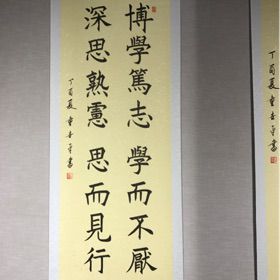 丁酉夏
書
博學篤志 學而不厭
深思熟慮 思而見行
丁酉夏
書